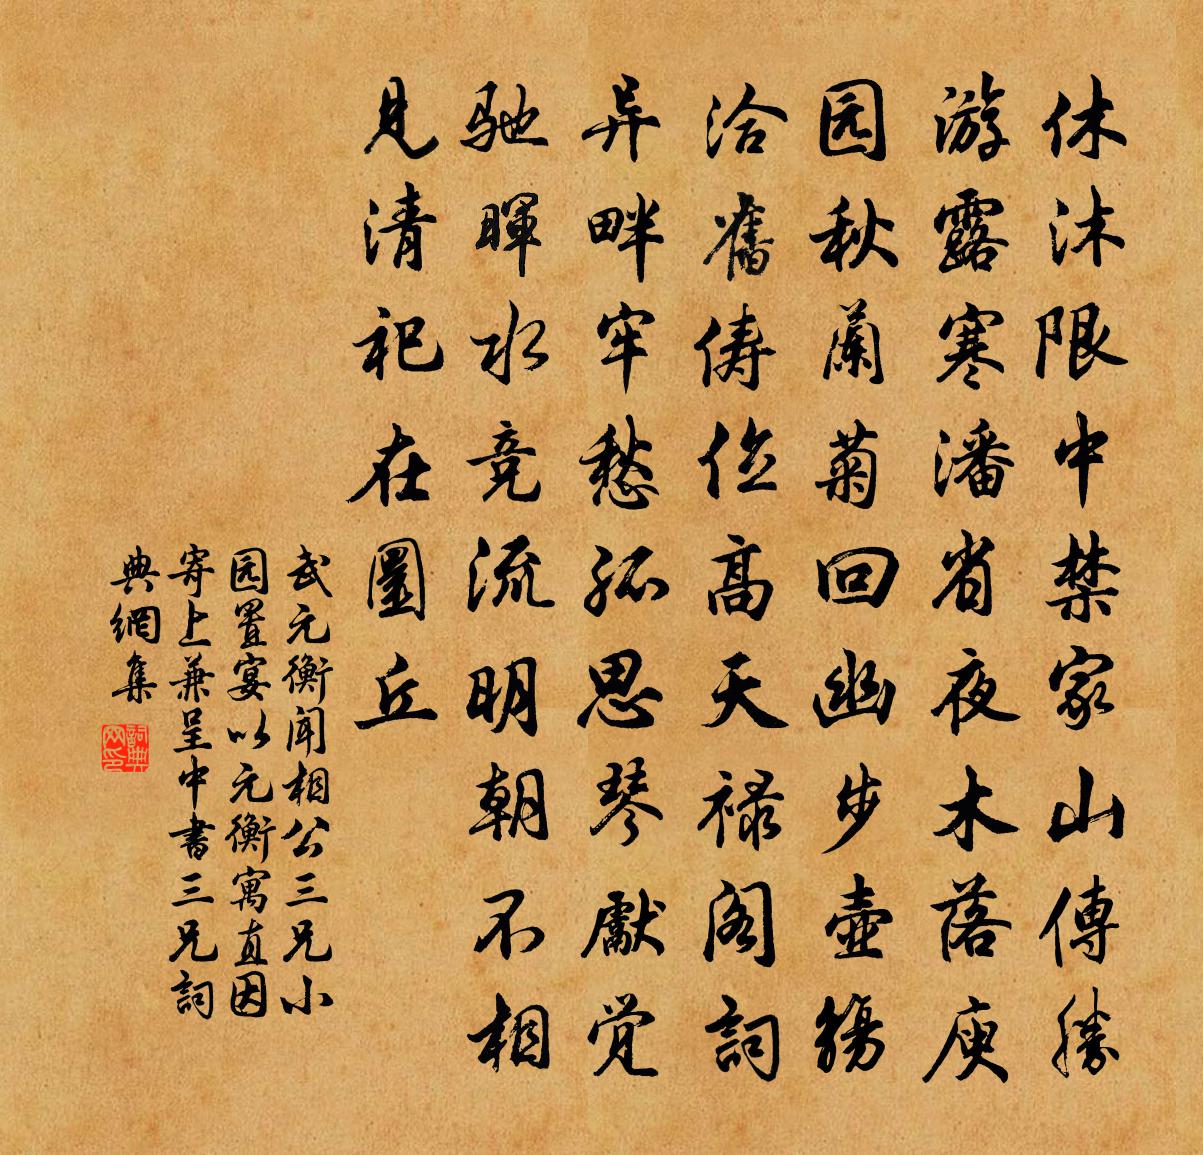 休沐限中禁家山傳勝
游露寒潘省夜木落庾
园秋蘭菊回幽步壺觴
洽舊儔位高天禄阁詞
异畔牢愁孤思琴獻觉
驰暉水竞流明朝不相
见清祀在圜丘
武元衡闻相公三兄小
园置宴以元衡寓直因
寄上兼呈中書三兄詞
典網集
詞典网印